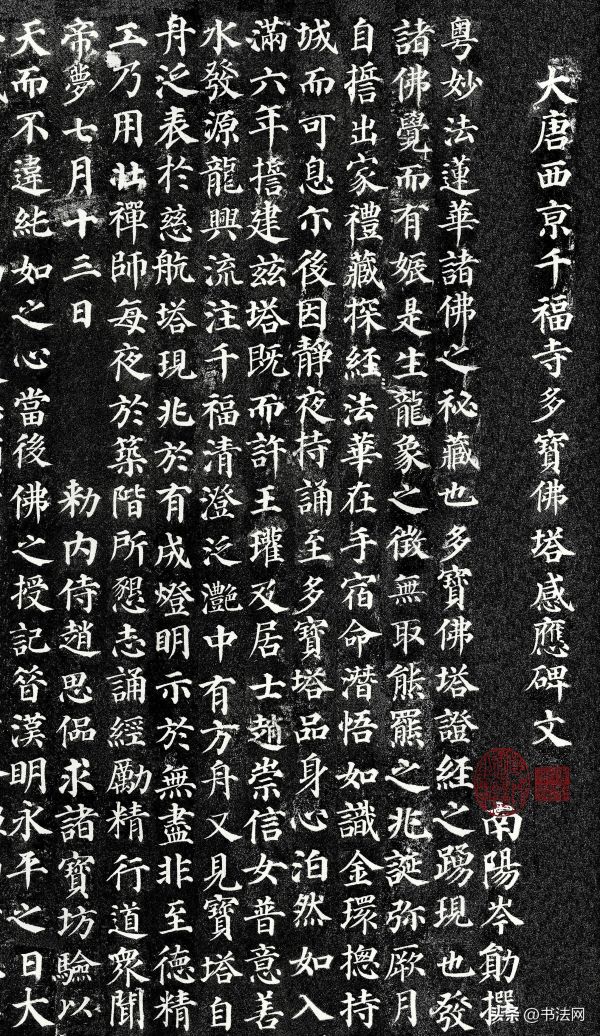 大唐西亰千福寺多寶佛塔感應碑文
南陽岑勛撰
粵妙法蓮華諸佛之秘藏也多寶佛塔證経之踴現也發
諸佛覺而有娠是生龍象之徵無取熊羆之兆誕弥厥月
自誓出家禮藏探経法華在手宿命潛悟如識金環揔持
城而可息尒後因靜夜持誦至多寶塔品身心泊然如入
滿六年誓建茲塔既而許王瓘及居士趙崇信女普意善
水發源龍興流注千福清澄泛灧中有方舟又見寶塔自
舟泛表於慈航塔現兆於有成燈明示於無盡非至德精
工乃用壯禪師每夜於築階所懇志誦經勵精行道眾聞
帝夢七月十三日 勑內侍趙思偘求諸寶坊驗以
天而不違純如之心當後佛之授記昔漢明永平之日大
头条 @书法网